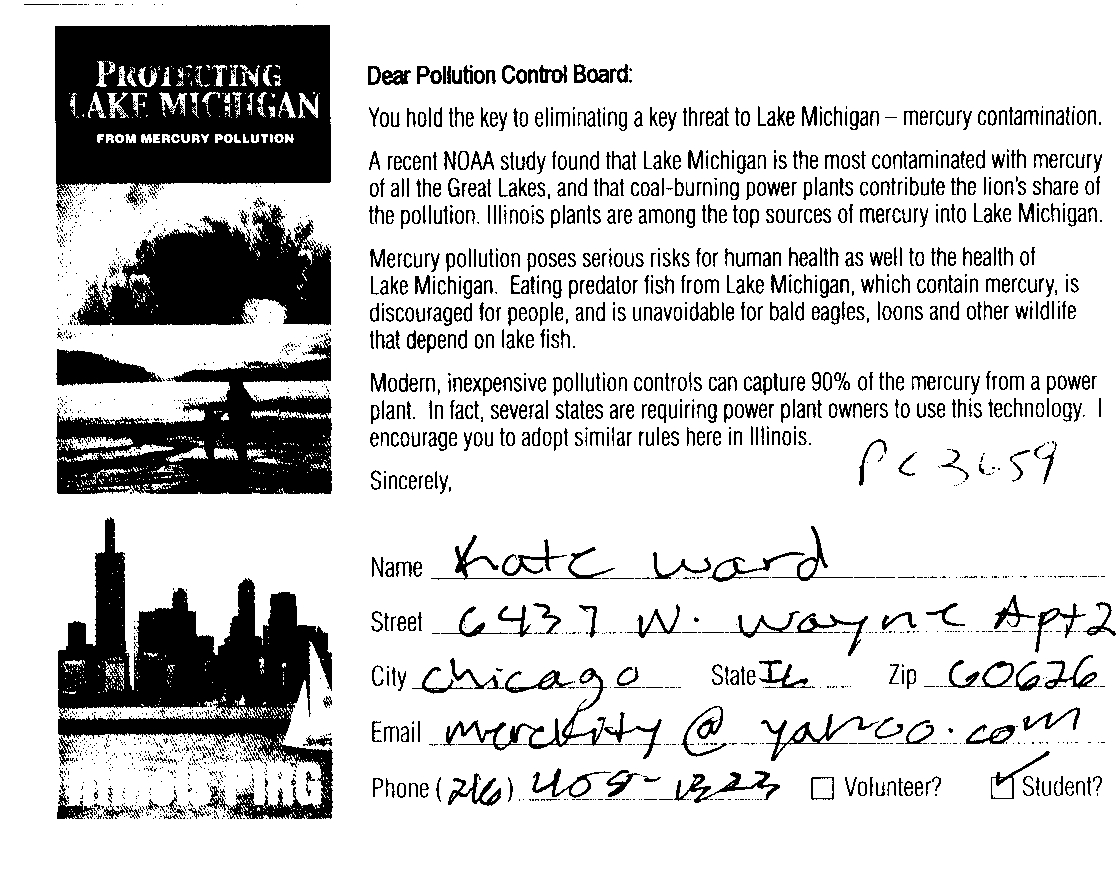 PROTECTING
LAKE MICHIGAN
FROM MERCURY POLLUTION
Illinois PIRG
Dear Pollution Control Board:
You hold the key to eliminating a key threat to Lake Michigan – mercury contamination.
A recent NOAA study found that Lake Michigan is the most contaminated with mercury
of all the Great Lakes, and that coal-burning power plants contribute the lion's share of
the pollution. Illinois plants are among the top sources of mercury into Lake Michigan.
Mercury pollution poses serious risks for human health as well to the health of
Lake Michigan. Eating predator fish from Lake Michigan, which contain mercury, is
discouraged for people, and is unavoidable for bald eagles, loons and other wildlife
that depend on lake fish.
Modern, inexpensive pollution controls can capture 90% of the mercury from a power
plant. In fact, several states are requiring power plant owners to use this technology. I
encourage you to adopt similar rules here in Illinois.
PC 3659
Sincerely,
Name Kate Ward
Street 6437 N. Wayne Apt 2
City Chicago State IL Zip 60626
Email merckitty@yahoo.com
Phone (216) Volunteer? Student?